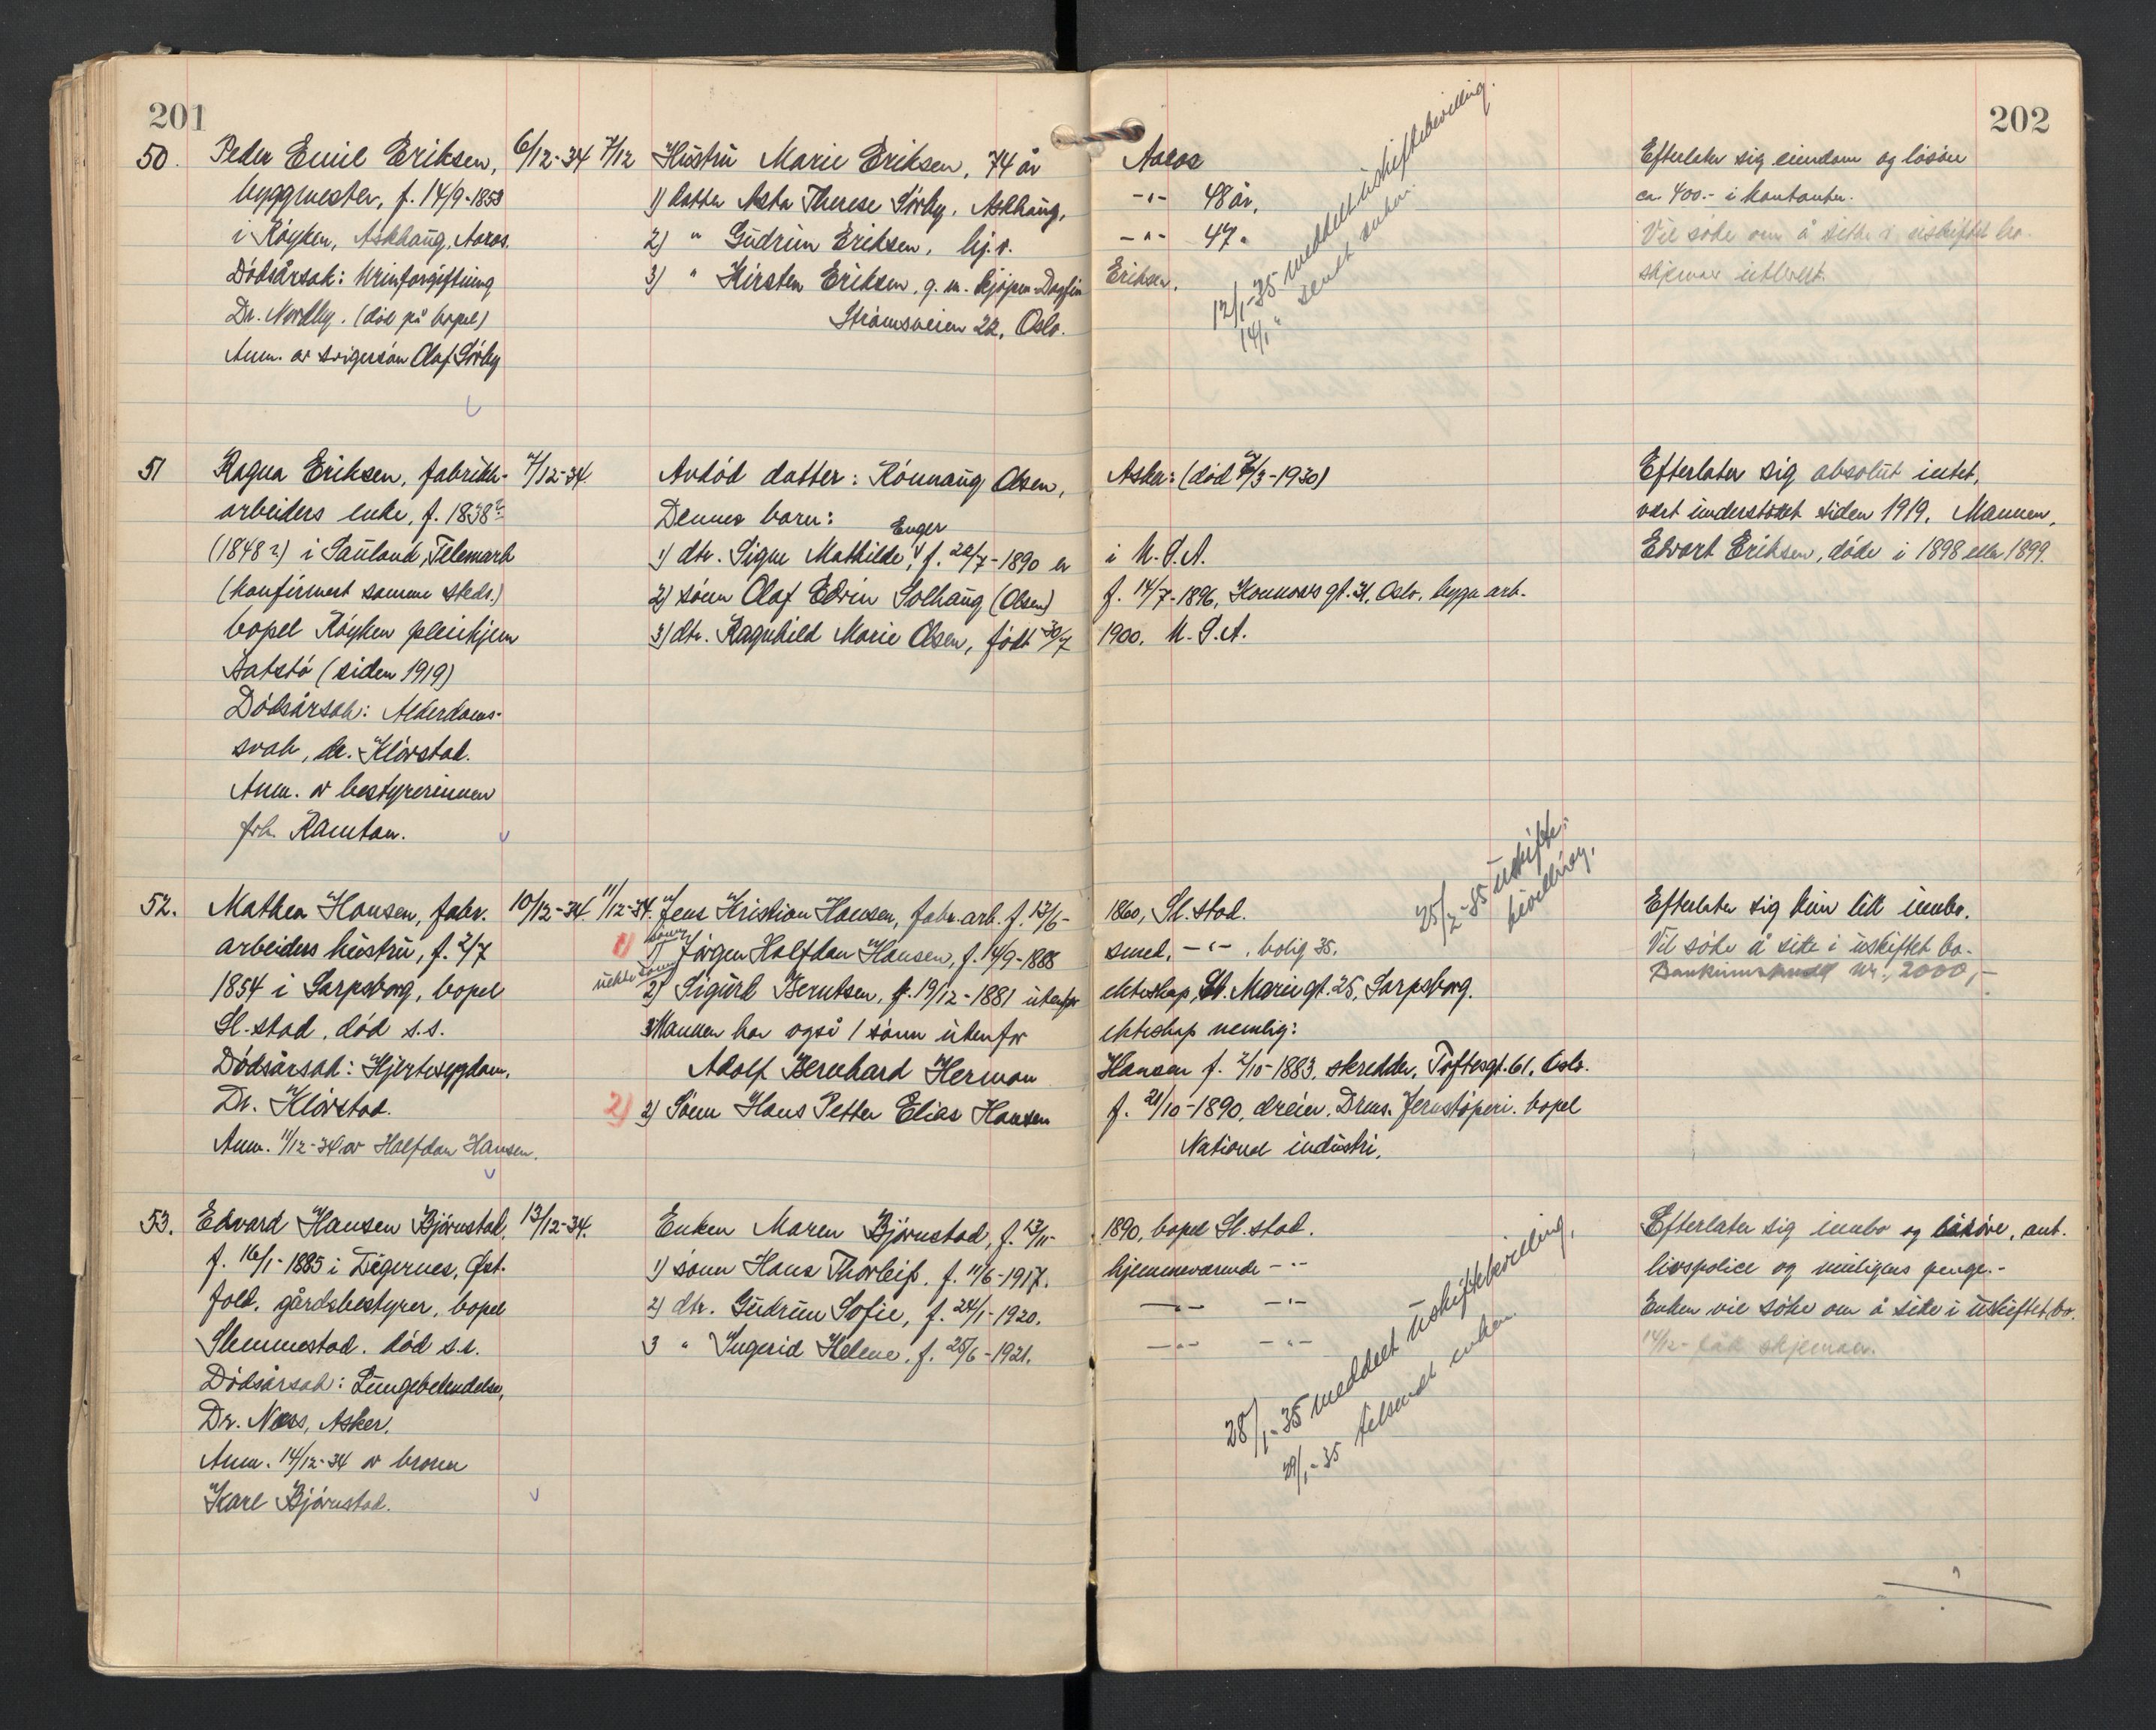 201
202
50. Peder Emil Eriksen, 6/12-34 7/12 Hustru Marie Eriksen, 74 år Aaros Efterlater sig eiendom og lösöre
byggmester, f. 14/9-1858 1) datter Asta Therese Sörby, Askhaug, -"- 48 år, ca. 400.- i kontanter.
i Röyken, Askhaug, Aaros. 2) " Gudrun Eriksen, hj.v. -"- 47 " Vil söke om å sitte i uskiftet bo.
Dödsårsak: Urinforgiftning 3) " Kirsten Eriksen, g. m. Eriksen. skjemaer utlevert.
Dr. Nordby. (död på bopel) Strömsveien 22, Oslo.
Anm. av svigersön Olaf Sörby
12/1-35 meddelt uskiftebevilling.
14/1 " sendt enken.
51 Ragna Eriksen, fabrikk- 7/12-34 Avdöd datter: Rönnaug Olsen, Asker: (död /3-1930) Efterlater sig absolut intet,
arbeiders enke, f. 1838? Dennes barn: vært understöttet siden 1919. Mannen,
(1848?) i Sauland, Telemark 1) dtr. Signe Mathilde Enger, f. 22/7-1890 er i U.S.A. Edvart Eriksen, döde i 1898 eller 1899.
(konfirmert samme steds.) 2) sönn Olaf Edvin Solhaug (Olsen) f. 14/7-1896, gt. 31, Oslo, bygn.arb.
bopel Röyken pleiehjem 3) dtr. Ragnhild Marie Olsen, födt 30/7 1900. U.S.A.
Aatstö (siden 1919)
Dödsårsak: Alderdoms-
svak, dr. Klövstad.
Anm. av bestyrerinnen
frk. Ramton.
52. Mathea Hansen, fabr. 10/12-34. 11/12-34. Jens Kristian Hansen, fabr.arb. f. 13/6- 1860, Sl.stad. Efterlater sig kun litt innbo.
arbeiders hustru, f. 2/7 1) sönn 1) Jörgen Halfdan Hansen, f. 14/9-1888 smed, -"-, bolig 35. Vil söke å sitte i uskiftet bo.
1854 i Sarpsborg, bopel uekte sönn 2) Sigurd Berntsen, f. 19/12-1881 utenfor ekteskap, St. Marie gt. 25, Sarpsborg. Bankinnskudd kr. 2000,-
Sl.stad, död s.s. Mannen har også 1 sönn utenfor ekteskap nemlig:
Dödsårsak: Hjertesygdom. Adolf Bernhard Herman Hansen f. 2/10-1883, skredder, Toftesgt. 61, Oslo.
Dr. Klövstad. 2) 2) Sönn Hans Petter Elias Hansen f. 21/10-1890, dreier, Drms. Jernstöperi. bopel
Anm. 11/12-34 av Halfdan Hansen. National industri.
25/2-35 uskifte-
bevilling.
53. Edvard Hansen Björnstad, 13/12-34. Enken Maren Björnstad, f. 13/11- 1890, bopel Sl.stad. Efterlater sig innbo og lösöre, ant.
f. 16/1-1885 i Degernes, Öst- 1) sönn Hans Thorleif, f. 11/6-1917. hjemmeværende -"- livspolice og muligens penge.-
fold, gårdsbestyrer, bopel 2) dtr. Gudrun Sofie, f. 24/1-1920. -"- -"- Enken vil söke om å sitte i uskiftet bo.
Slemmestad. död s.s. 3 " Ingerid Helene, f. 25/6-1921. -"- -"- 14/12- fåt skjemaer.
Dödsårsak: Lungebetendelse,
Dr. Næss, Asker.
Anm. 14/12-34 av broren
Karl Björnstad.
28/1-35 meddelt uskiftebevilling,
29/1-35 tilsendt enken